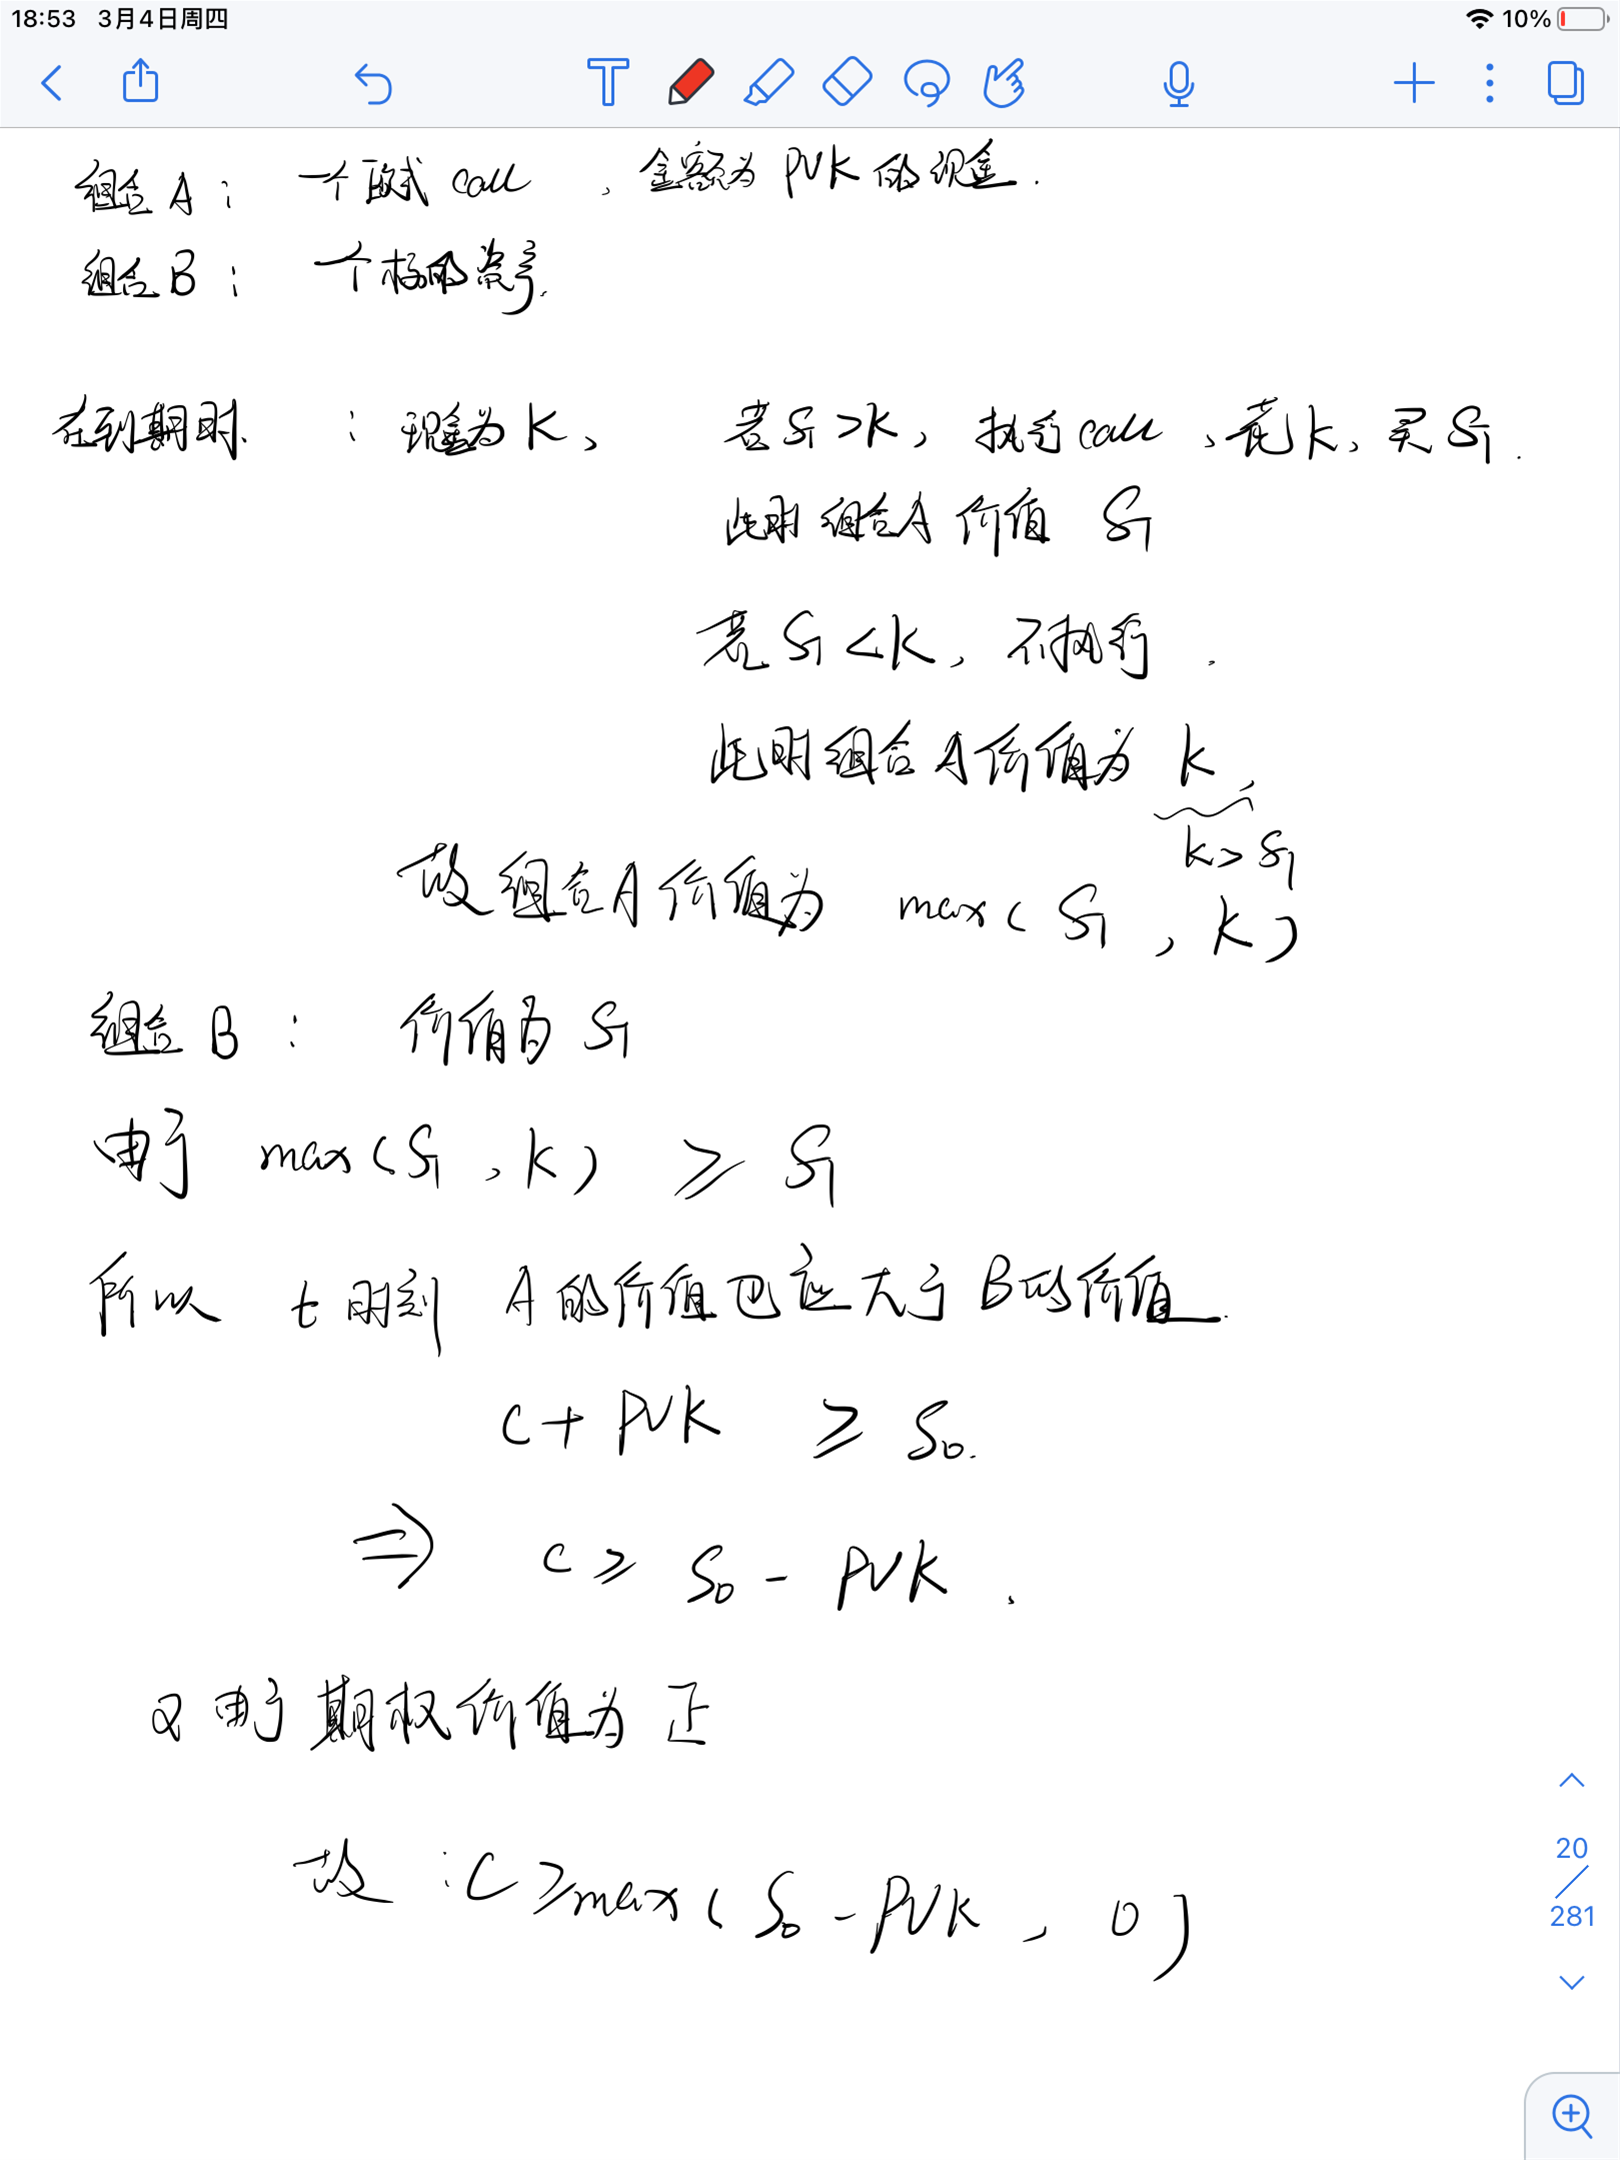 18:53 3月4日周四 10%
组合 A： 一个欧式 call ，金额为 PVK 的现金．
组合 B： 一个标的资产．
在到期时 ：现金为 K， 若 S_T >K， 执行 call ，花 k，买 S_T．
此时组合A 价值 S_T
若 S_T <K，不执行．
此时组合A价值为 k，
k> S_T
故组合A价值为 max( S_T , k)
组合 B： 价值为 S_T
由于 max(S_T ,k) ≥ S_T
所以 t时刻 A的价值也应大于B的价值．
C+ PVK ≥ S₀.
⇒ C≥ S₀ - PVK .
又由于期权价值为正
故：C≥max( S₀ -PVK , 0)
20
281